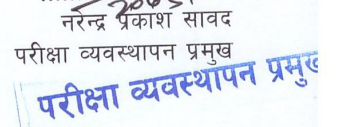 नरेन्द्र प्रकाश सावद
परीक्षा व्यवस्थापन प्रमुख
परीक्षा व्यवस्थापन प्रमुख